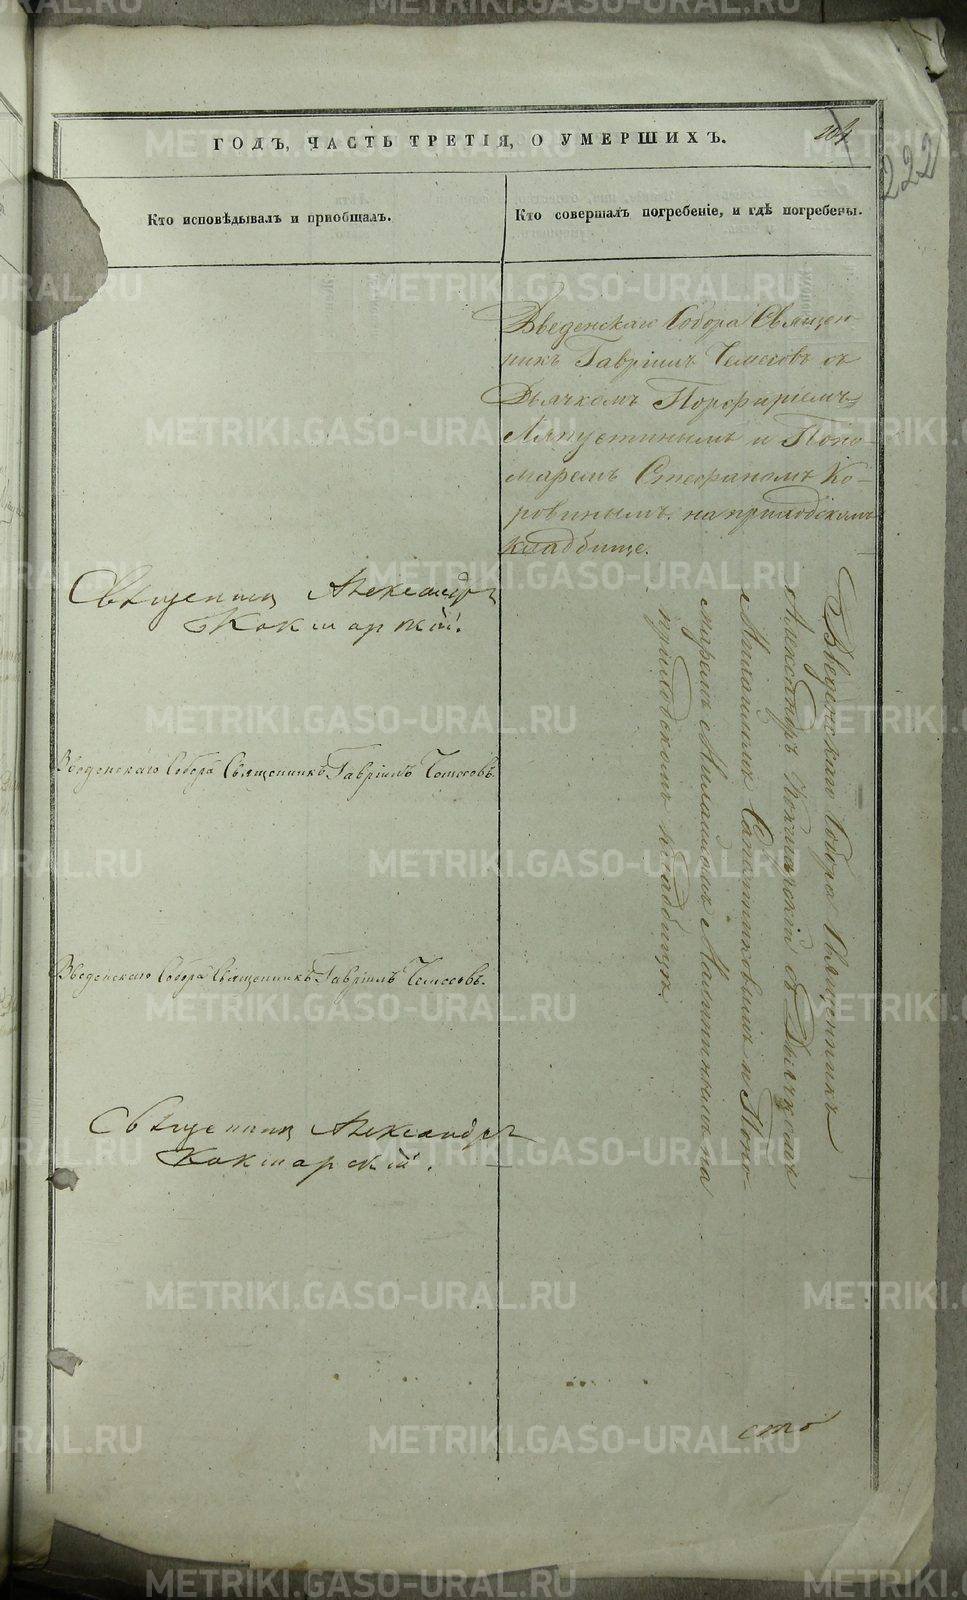 ГОДЪ, ЧАСТЬ ТРЕТІЯ, О УМЕРШИХЪ.
222
Кто исповѣдывалъ и пріобщалъ.
Кто совершалъ погребеніе, и гдѣ погребены.
Введенскаго Собора Священ-
никъ Гавріилъ Чемесовъ съ
Дьячкомъ Порфиріемъ
Ляпустинымъ и Поно-
маремъ Стефаномъ Ко-
ровинымъ. на приходскомъ
кладбище.
Священник Александр
Кокшарскій.
Введенскаго Собора Священникъ Гавріилъ Чемесовъ.
Введенскаго Собора Священникъ Гавріилъ Чемесовъ.
Священник Александръ
Кокшарскій.
Введенскаго Собора Священникъ
Александръ Кокшарскій съ Дьячкомъ
и Поно-
маремъ на
приходскомъ кладбище.
сто
METRIKI.GASO-URAL.RU